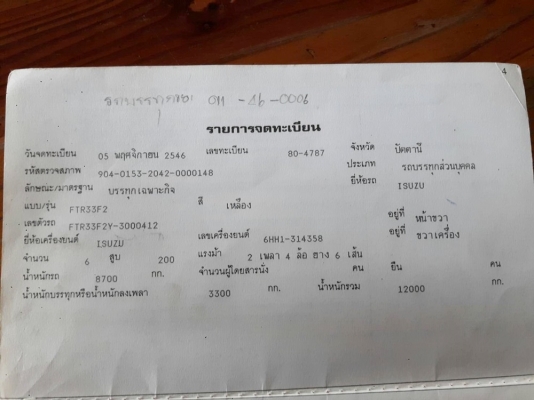 4
011 - 46 - 0006
รายการจดทะเบียน
วันจดทะเบียน 05 พฤศจิกายน 2546 เลขทะเบียน 80-4787 จังหวัด ปัตตานี
รหัสตรวจสภาพ 904-0153-2042-0000148 ประเภท รถบรรทุกส่วนบุคคล
ลักษณะ/มาตรฐาน บรรทุกเฉพาะกิจ ยี่ห้อรถ ISUZU
แบบ/รุ่น FTR33F2 สี เหลือง
เลขตัวรถ FTR33F2Y-3000412 อยู่ที่ หน้าขวา
ยี่ห้อเครื่องยนต์ ISUZU เลขเครื่องยนต์ 6HH1-314358 อยู่ที่ ขวาเครื่อง
จำนวน 6 สูบ 200 แรงม้า 2 เพลา 4 ล้อ ยาง 6 เส้น
น้ำหนักรถ 8700 กก. จำนวนผู้โดยสารนั่ง คน ยืน คน
น้ำหนักบรรทุกหรือน้ำหนักลงเพลา 3300 กก. น้ำหนักรวม 12000 กก.